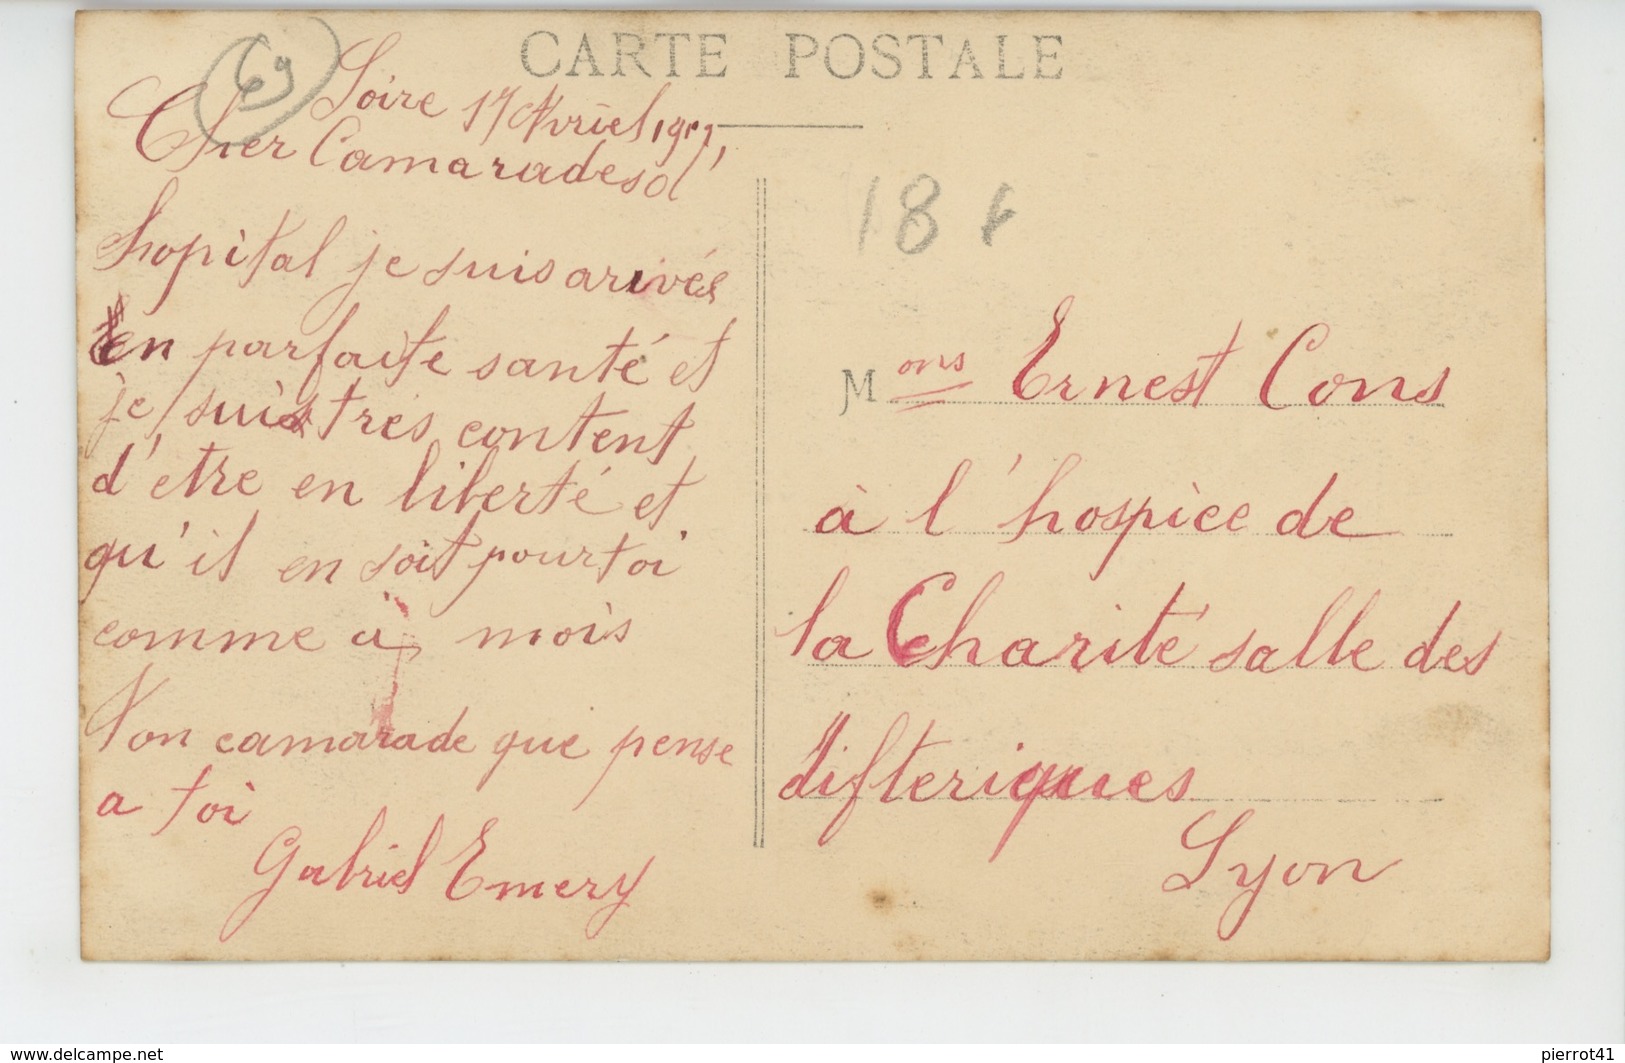 CARTE POSTALE
69
Loire 17 Avriel 1912
Cher Camarades d'
hopital je suis arivés
en parfaite santé et
je suis trés content
d'etre en liberté et
qu'il en soit pour toi
comme à mois
Ton camarade que pense
a toi
Gabriel Emery
18
Mons Ernest Cons
à l'hospice de
la Charité salle des
difteriques
Lyon
www.delcampe.net
pierrot41